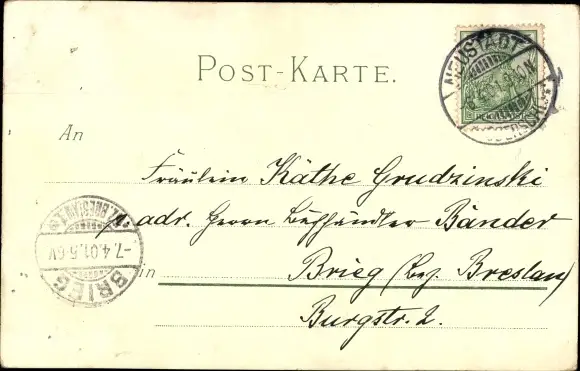 POST-KARTE.
NEUSTADT
OBERSCHL.
An
Fräulein Käthe Grudzinski
adr. Herrn Buchhändler Bänder
in Brieg (Bez. Breslau)
Burgstr. 2.
BRIEG
*(BZ. BRESLAU)*
-7.4.01.5-6V